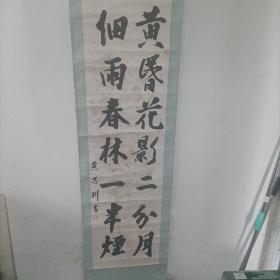 黄昏花影二分月
细雨春林一半烟